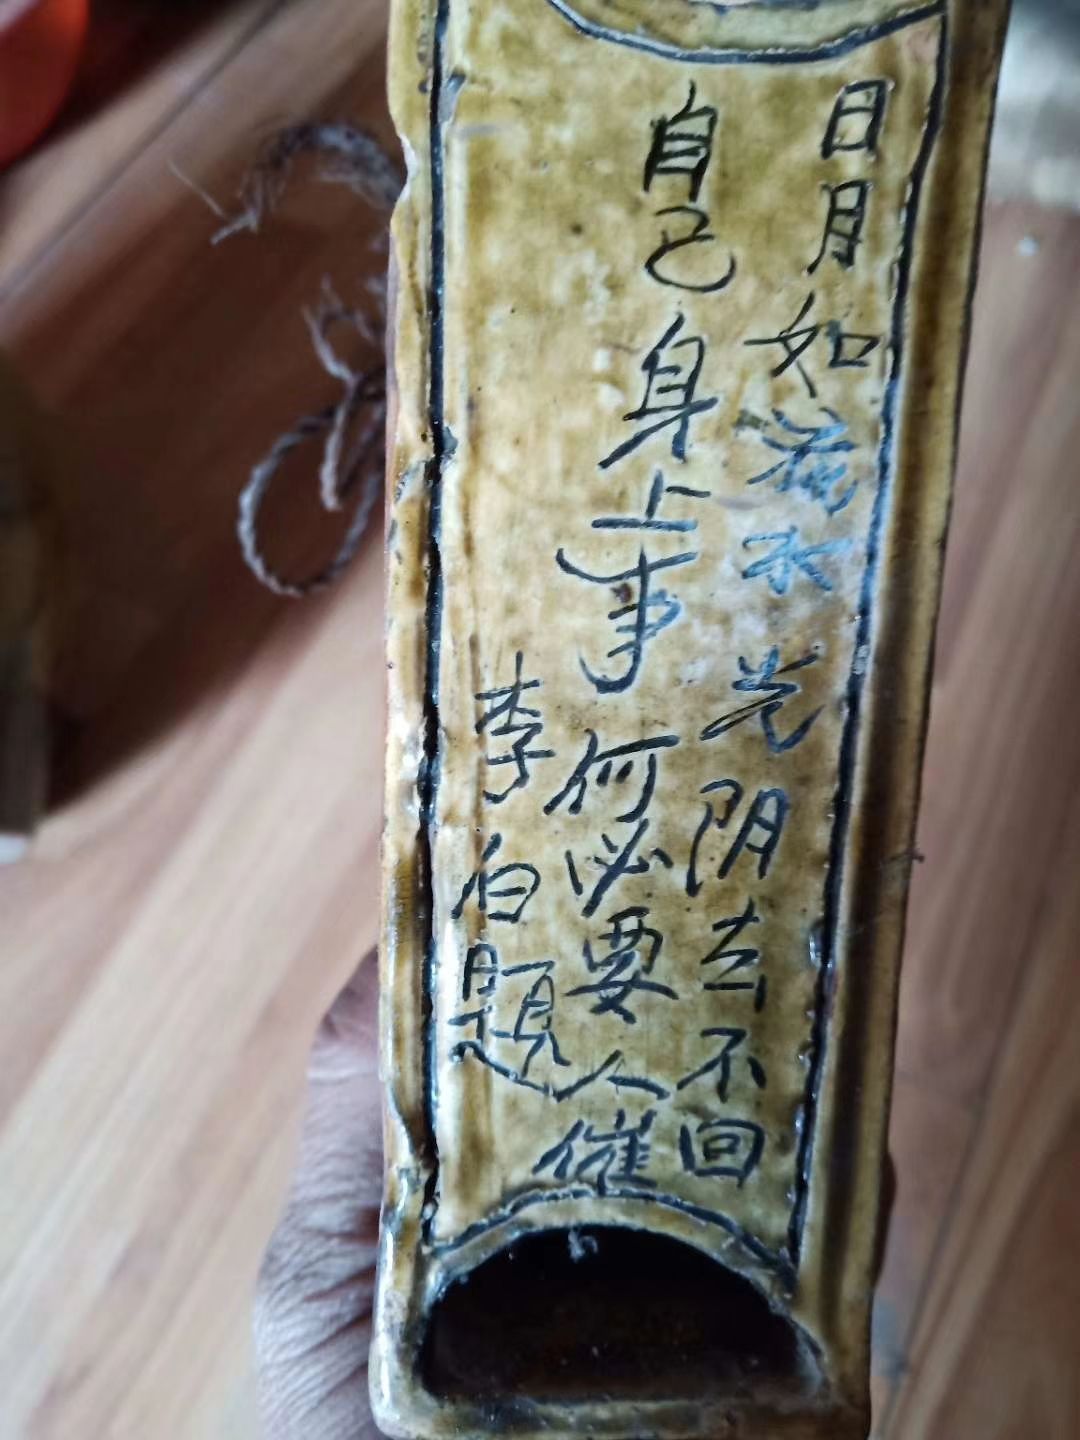 日月如流水光阴去不回
自己身上事何必要人催
李白题